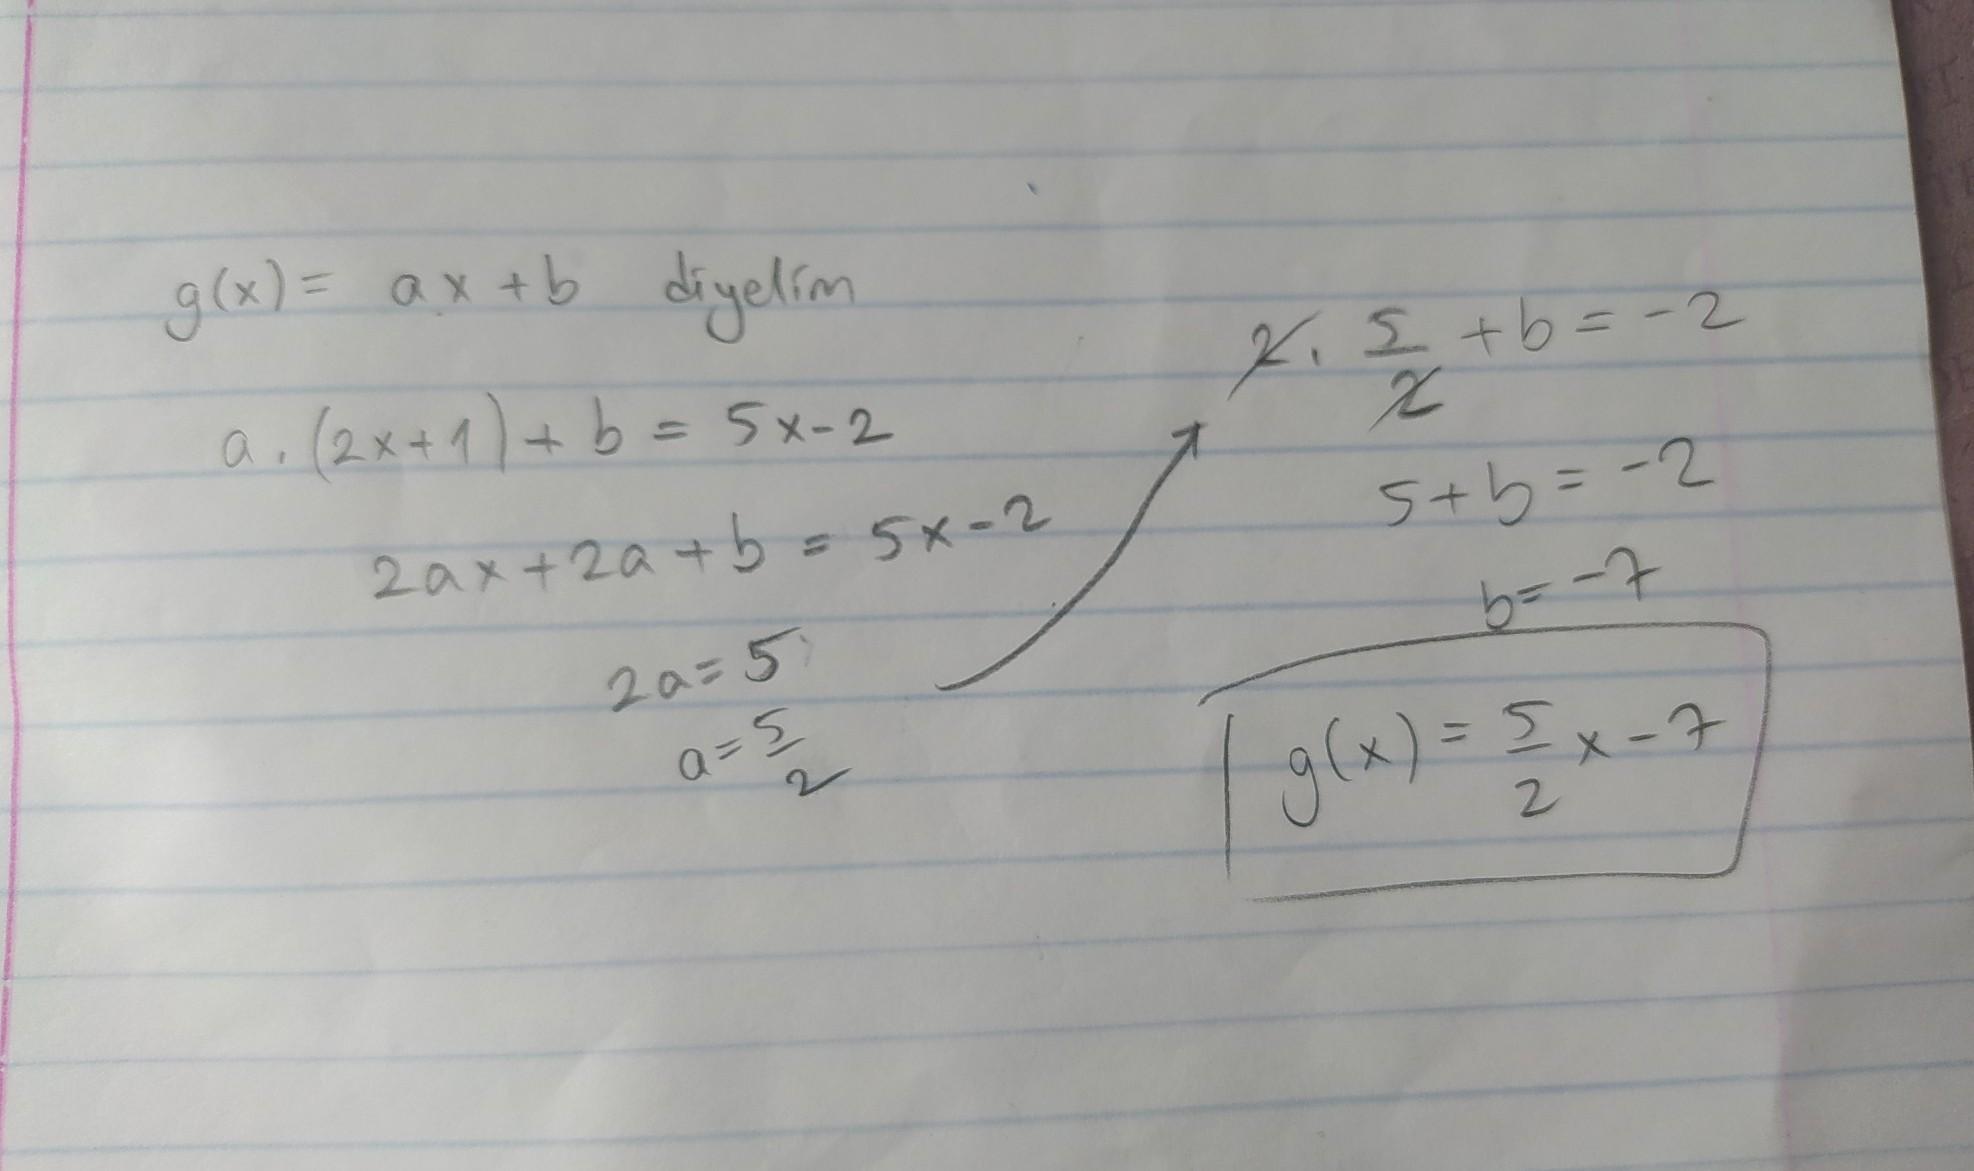 g(x) = ax + b diyelim
a. (2x+1) + b = 5x-2
2ax + 2a + b = 5x-2
2a = 5
a = 5/2
2. 5/2 + b = -2
5 + b = -2
b = -7
g(x) = 5/2 x - 7